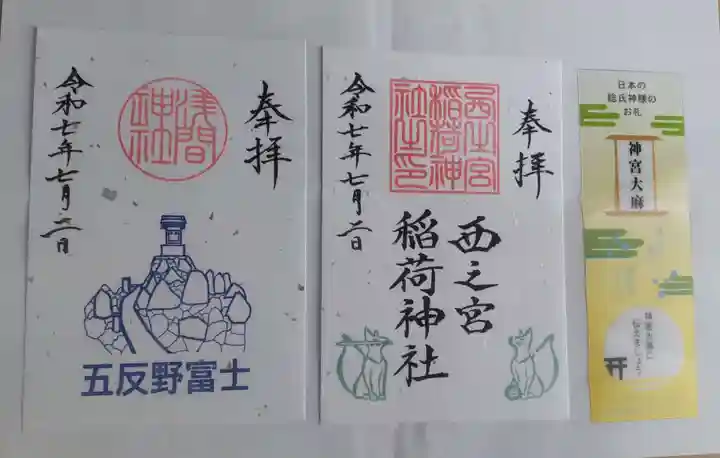 奉拝
浅間
神社
令和七年七月二日
五反野富士
奉拝
西之宮
稲荷神
社之印
西之宮
稲荷神社
令和七年七月二日
日本の
総氏神様の
お札
神宮大麻